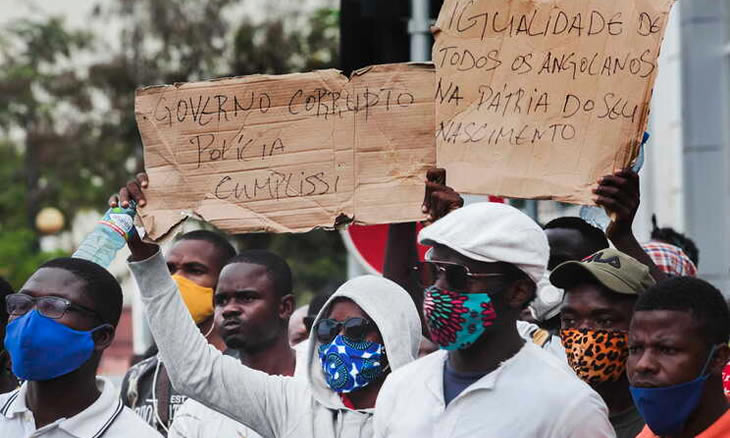 GOVERNO CORRUPTO
POLÍCIA
CUMPLISSI
IGUALIDADE DE
TODOS OS ANGOLANOS
NA PÁTRIA DO SEU
NASCIMENTO